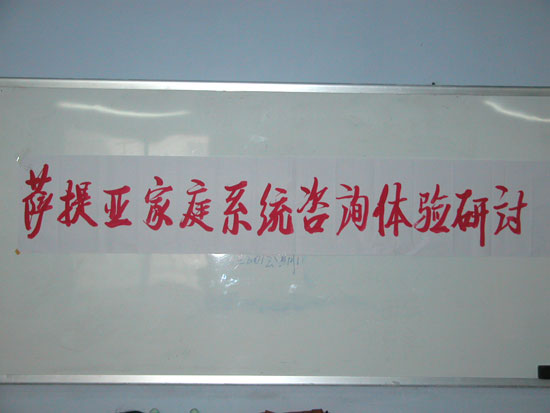 萨提亚家庭系统咨询体验研讨